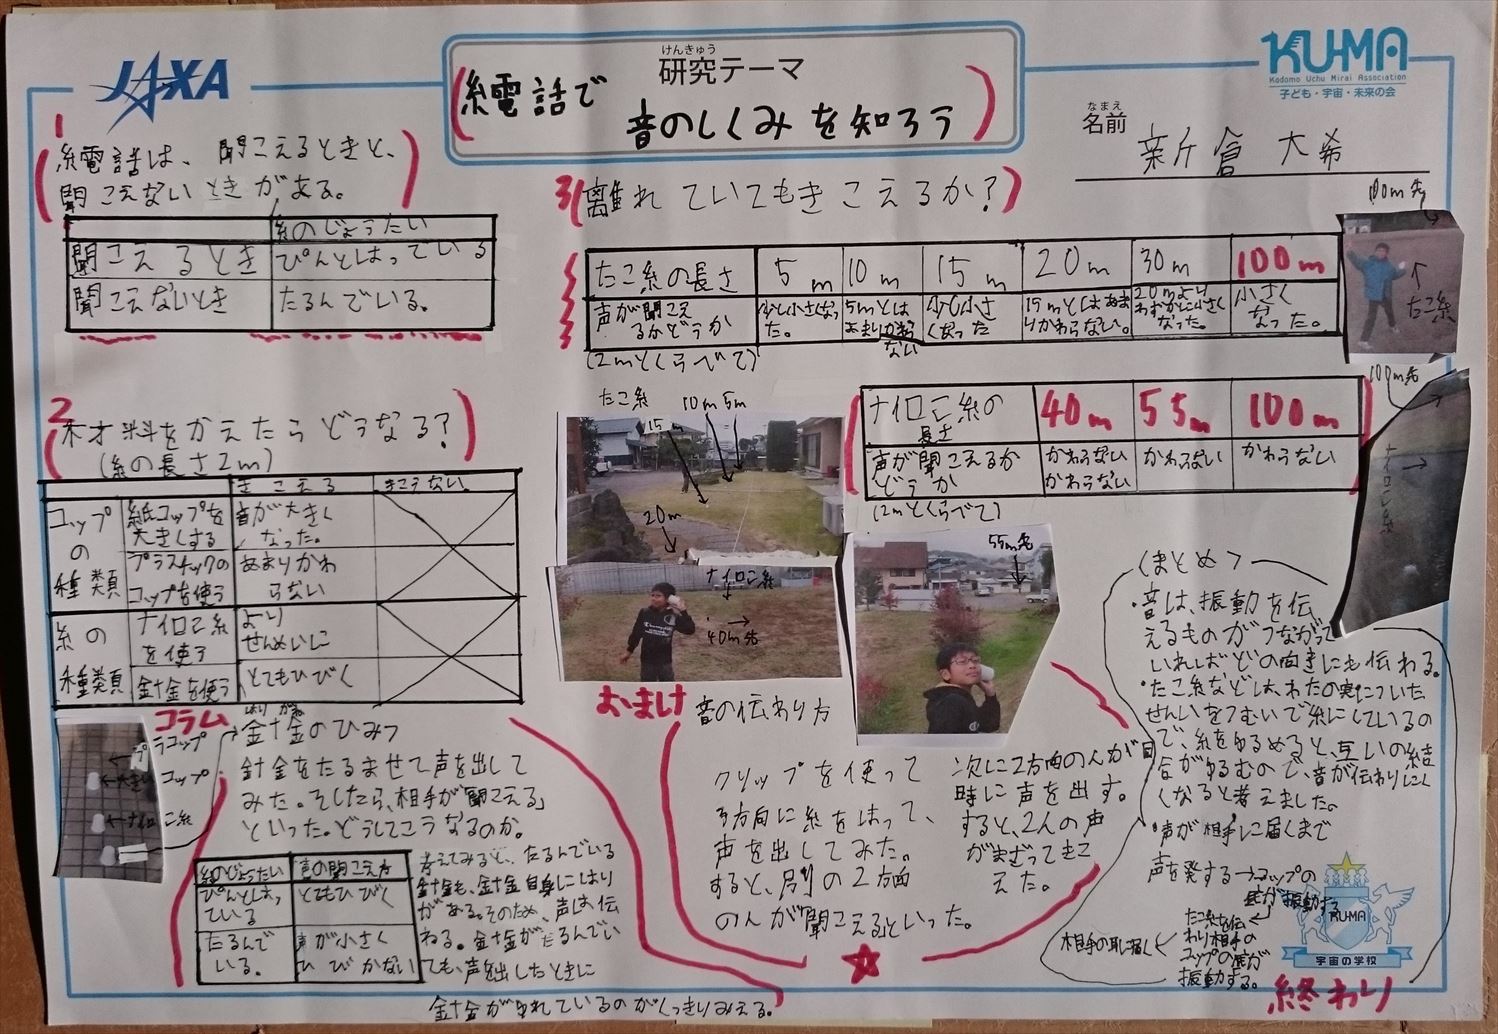 JAXA
けんきゅう
研究テーマ
糸電話で
音のしくみを知ろう
KU-MA
Kodomo Uchu Mirai Association
子ども・宇宙・未来の会
なまえ
名前
新倉 大希
1
糸電話は、聞こえるときと、
聞こえないときがある。
糸のじょうたい
聞こえるとき ぴんとはっている
聞こえないとき たるんでいる。
2
材料をかえたらどうなる?
(糸の長さ2m)
きこえる きこえない。
コップの種類
紙コップを大きくする
音が大きくなった。
プラスチックのコップを使う
あまりかわらない
糸の種類
ナイロン糸を使う
よりせんめいに
針金を使う
とてもひびく
3
離れていてもきこえるか?
たこ糸の長さ 5m 10m 15m 20m 30m 100m
声が聞こえるかどうか
少し小さなった。
5mとはあまりかわらない
少し小さくなった
15mとはあまりかわらない。
20mよりわずかに小さくなった。
小さくなった。
(2mとくらべて)
100m先
たこ糸
ナイロン糸の長さ 40m 55m 100m
声が聞こえるかどうか
かわらない
かわらない
かわらない
かわらない
(2mとくらべて)
100m先
ナイロン糸
たこ糸
10m 5m
15m
20m
ナイロン糸
40m先
55m先
コラム
はりがね
針金のひみつ
針金をたるませて声を出して
みた。そしたら、相手が「聞こえる」
といった。どうしてこうなるのか。
糸のじょうたい 声の聞こえ方
ぴんとはっている とてもひびく
たるんでいる。 声が小さくひびかない
考えてみると、たるんでいる
針金も、針金自身にはり
がある。そのため、声は伝
わる。針金がたるんでい
ても、声を出したときに
針金がゆれているのがくっきりみえる。
プラコップ
大きいコップ
ナイロン糸
おまけ 音の伝わり方
クリップを使って
3方向に糸をはって、
声を出してみた。
すると、別の2方面
の人が「聞こえる」といった。
次に2方向の人が同
時に声を出す。
すると、2人の声
がまざってきこ
えた。
(まとめ)
・音は、振動を伝
えるものがつながって
いればどの向きにも伝わる。
・たこ糸などは、わたの実についた
せんいをつむいで糸にしているの
で、糸をゆるめると、互いの結
合がゆるむので、音が伝わりにく
くなると考えました。
・声が相手に届くまで
声を発する→コップの
底が振動する
たこ糸を伝
わり相手の
コップの底が
振動する。
相手の耳に届く
KU-MA
宇宙の学校
終わり